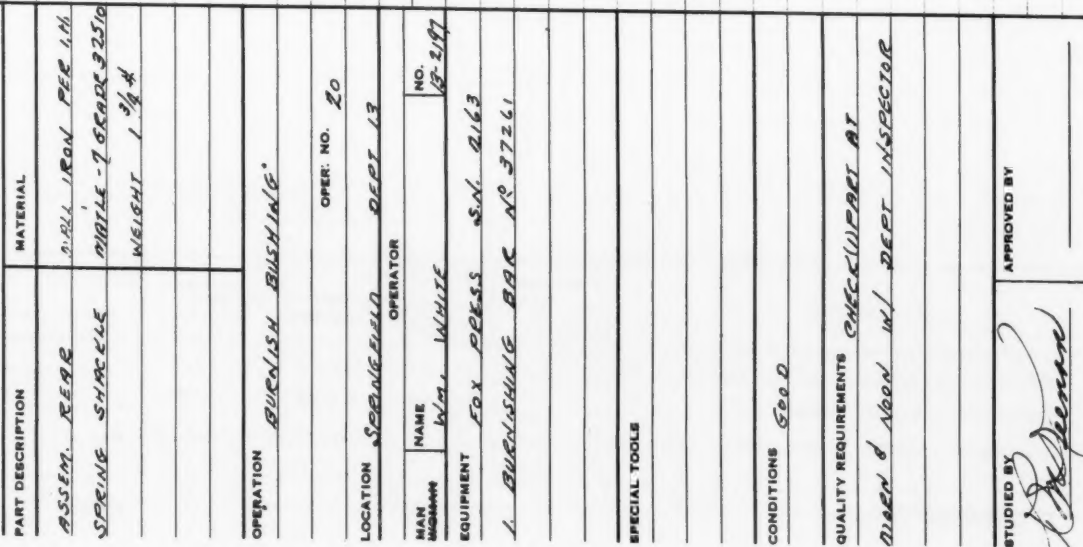 PART DESCRIPTION MATERIAL
ASSEM. REAR MALL IRON PER I.H.
SPRING SHACKLE MATLE-7 GRADE 32510
WEIGHT 1 3/4 #
OPERATION BURNISH BUSHING
OPER. NO. 20
LOCATION SPRINGFIELD DEPT 13
OPERATOR
MAN WOMAN NAME WM. WHITE NO. 13-2197
EQUIPMENT FOX PRESS S.N. 2163
1. BURNISHING BAR Nº 37261
SPECIAL TOOLS
CONDITIONS GOOD
QUALITY REQUIREMENTS CHECK (1) PART AT
MORN & NOON W/ DEPT INSPECTOR
STUDIED BY APPROVED BY